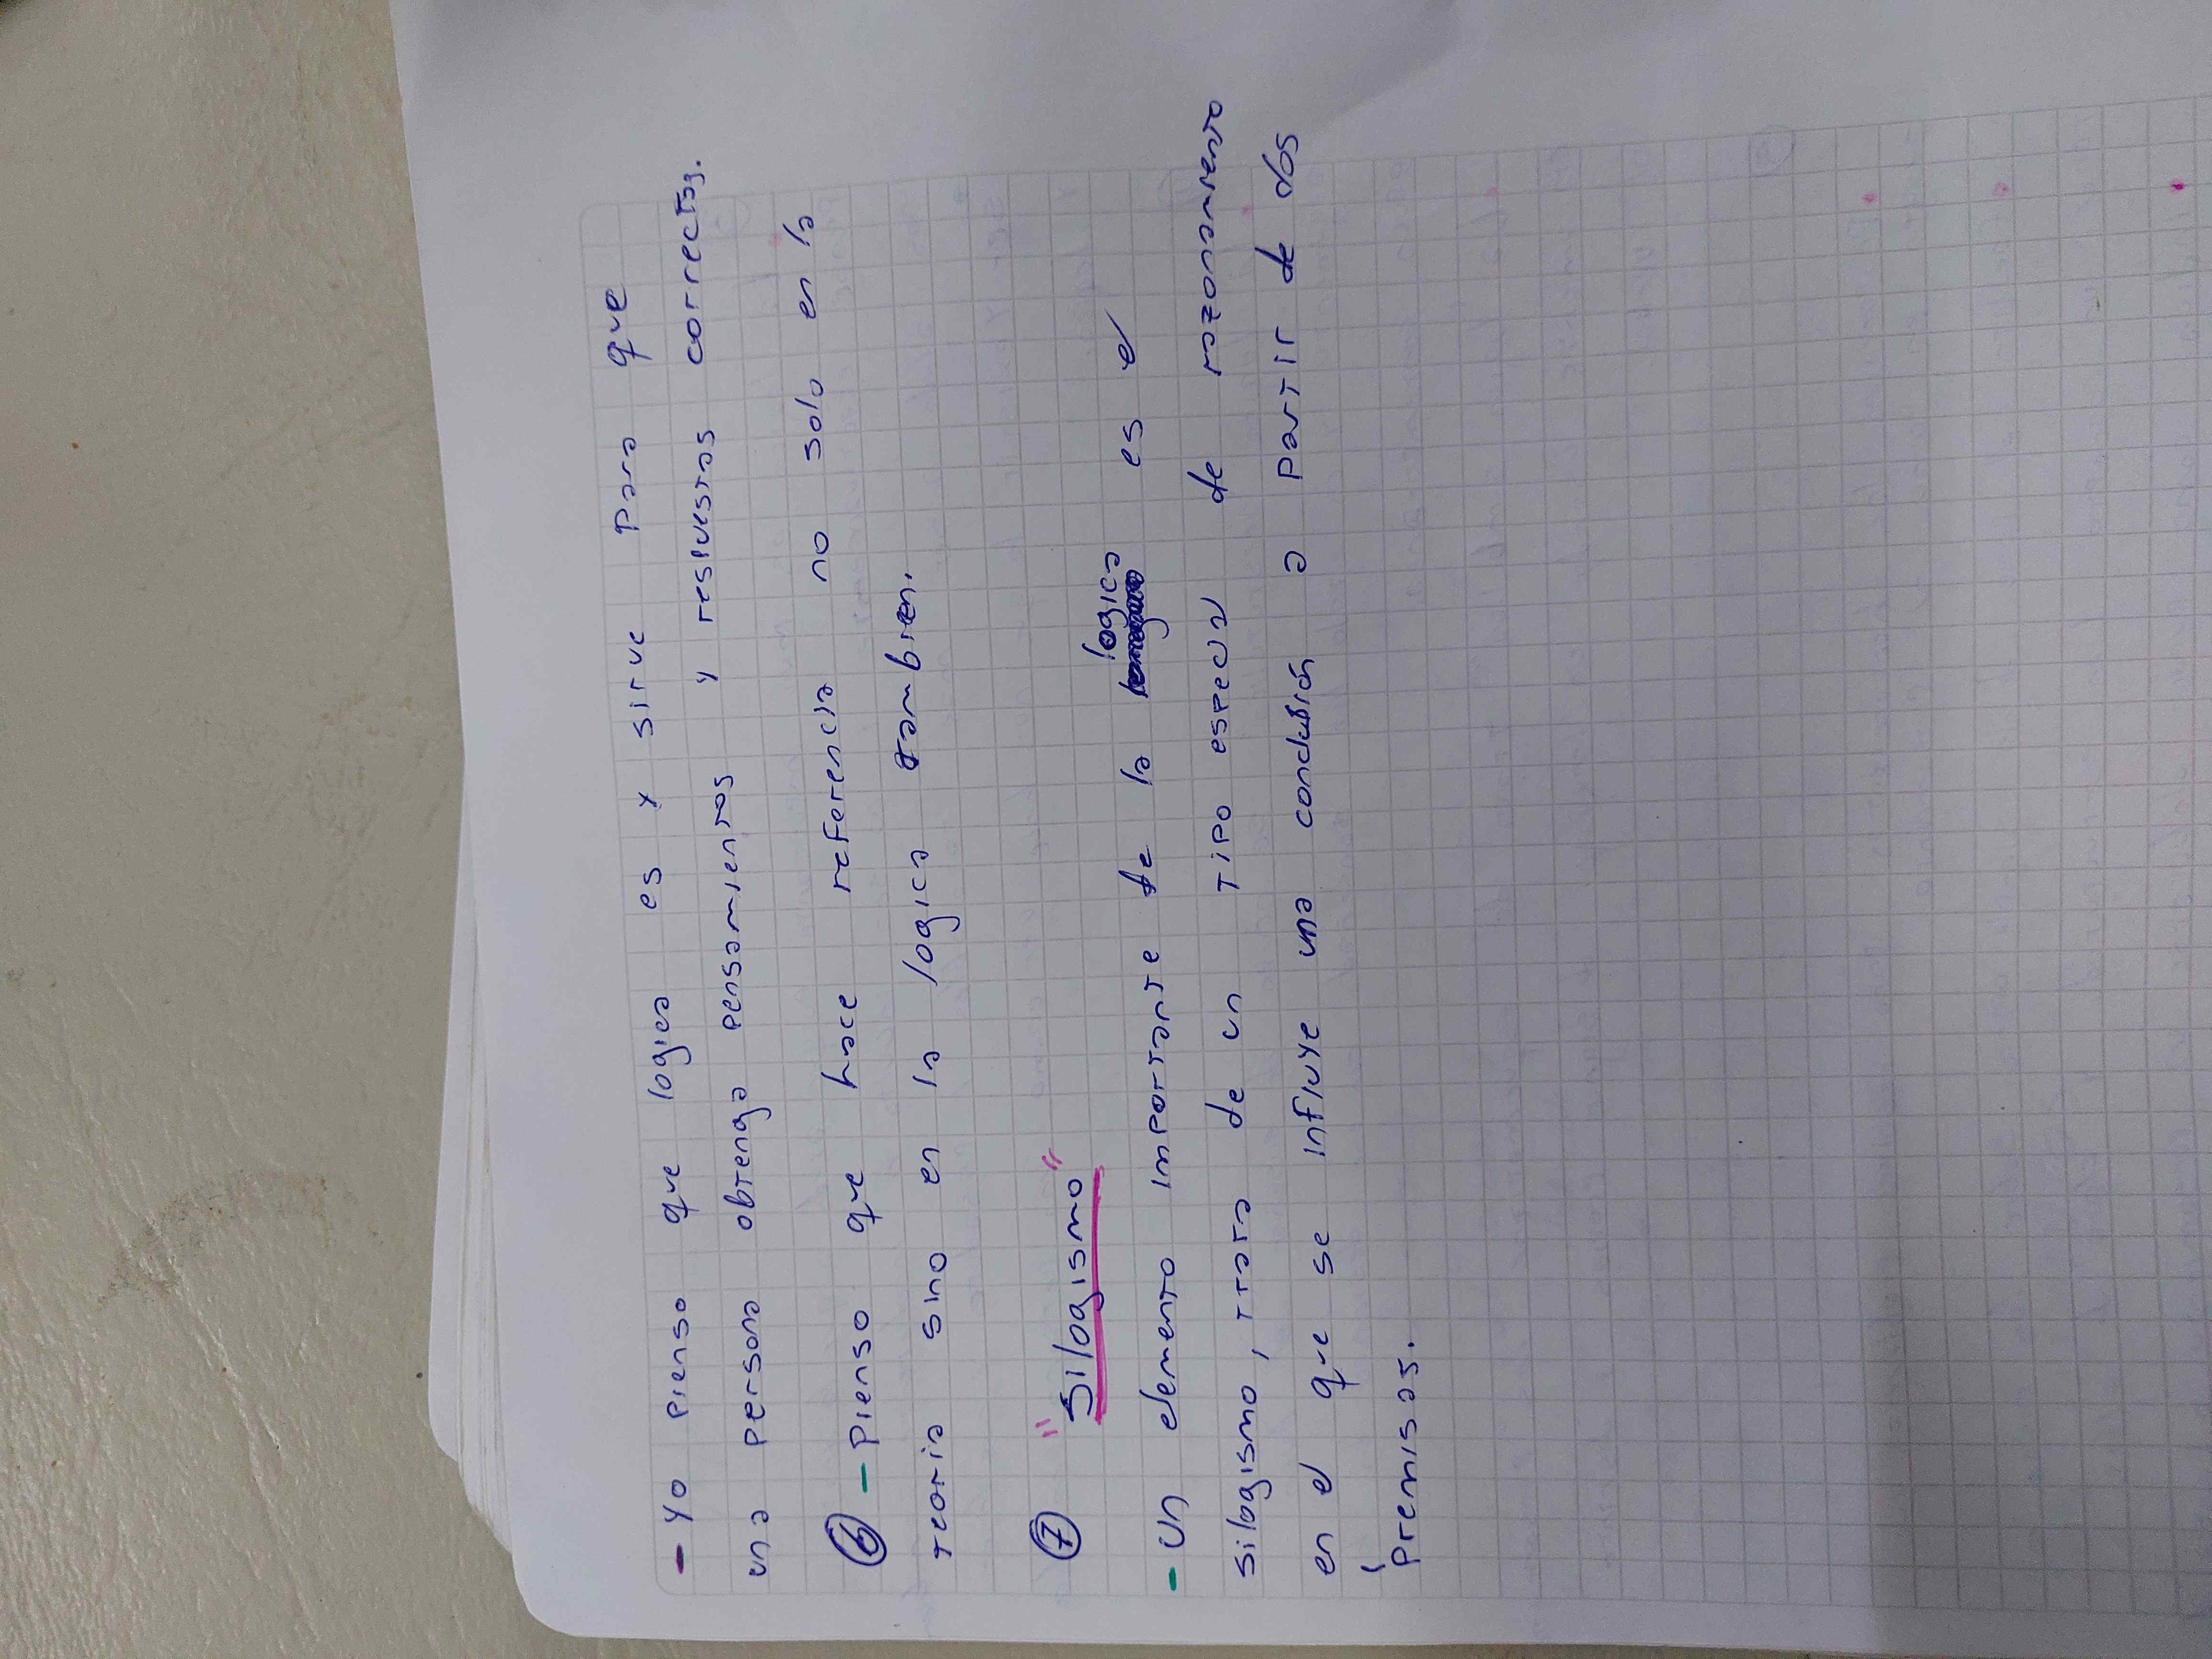 - Yo pienso que logica es y sirve para que
una persona obtenga pensamientos y respuestas correctas.
6 - Pienso que hace referencia no solo en la
teoria sino en la logica tambien.
7 "Silogismo"
- Un elemento importante de la logica es el
silogismo, trata de un tipo especial de razonamiento
en el que se influye una conclusión a partir de dos
premisas.